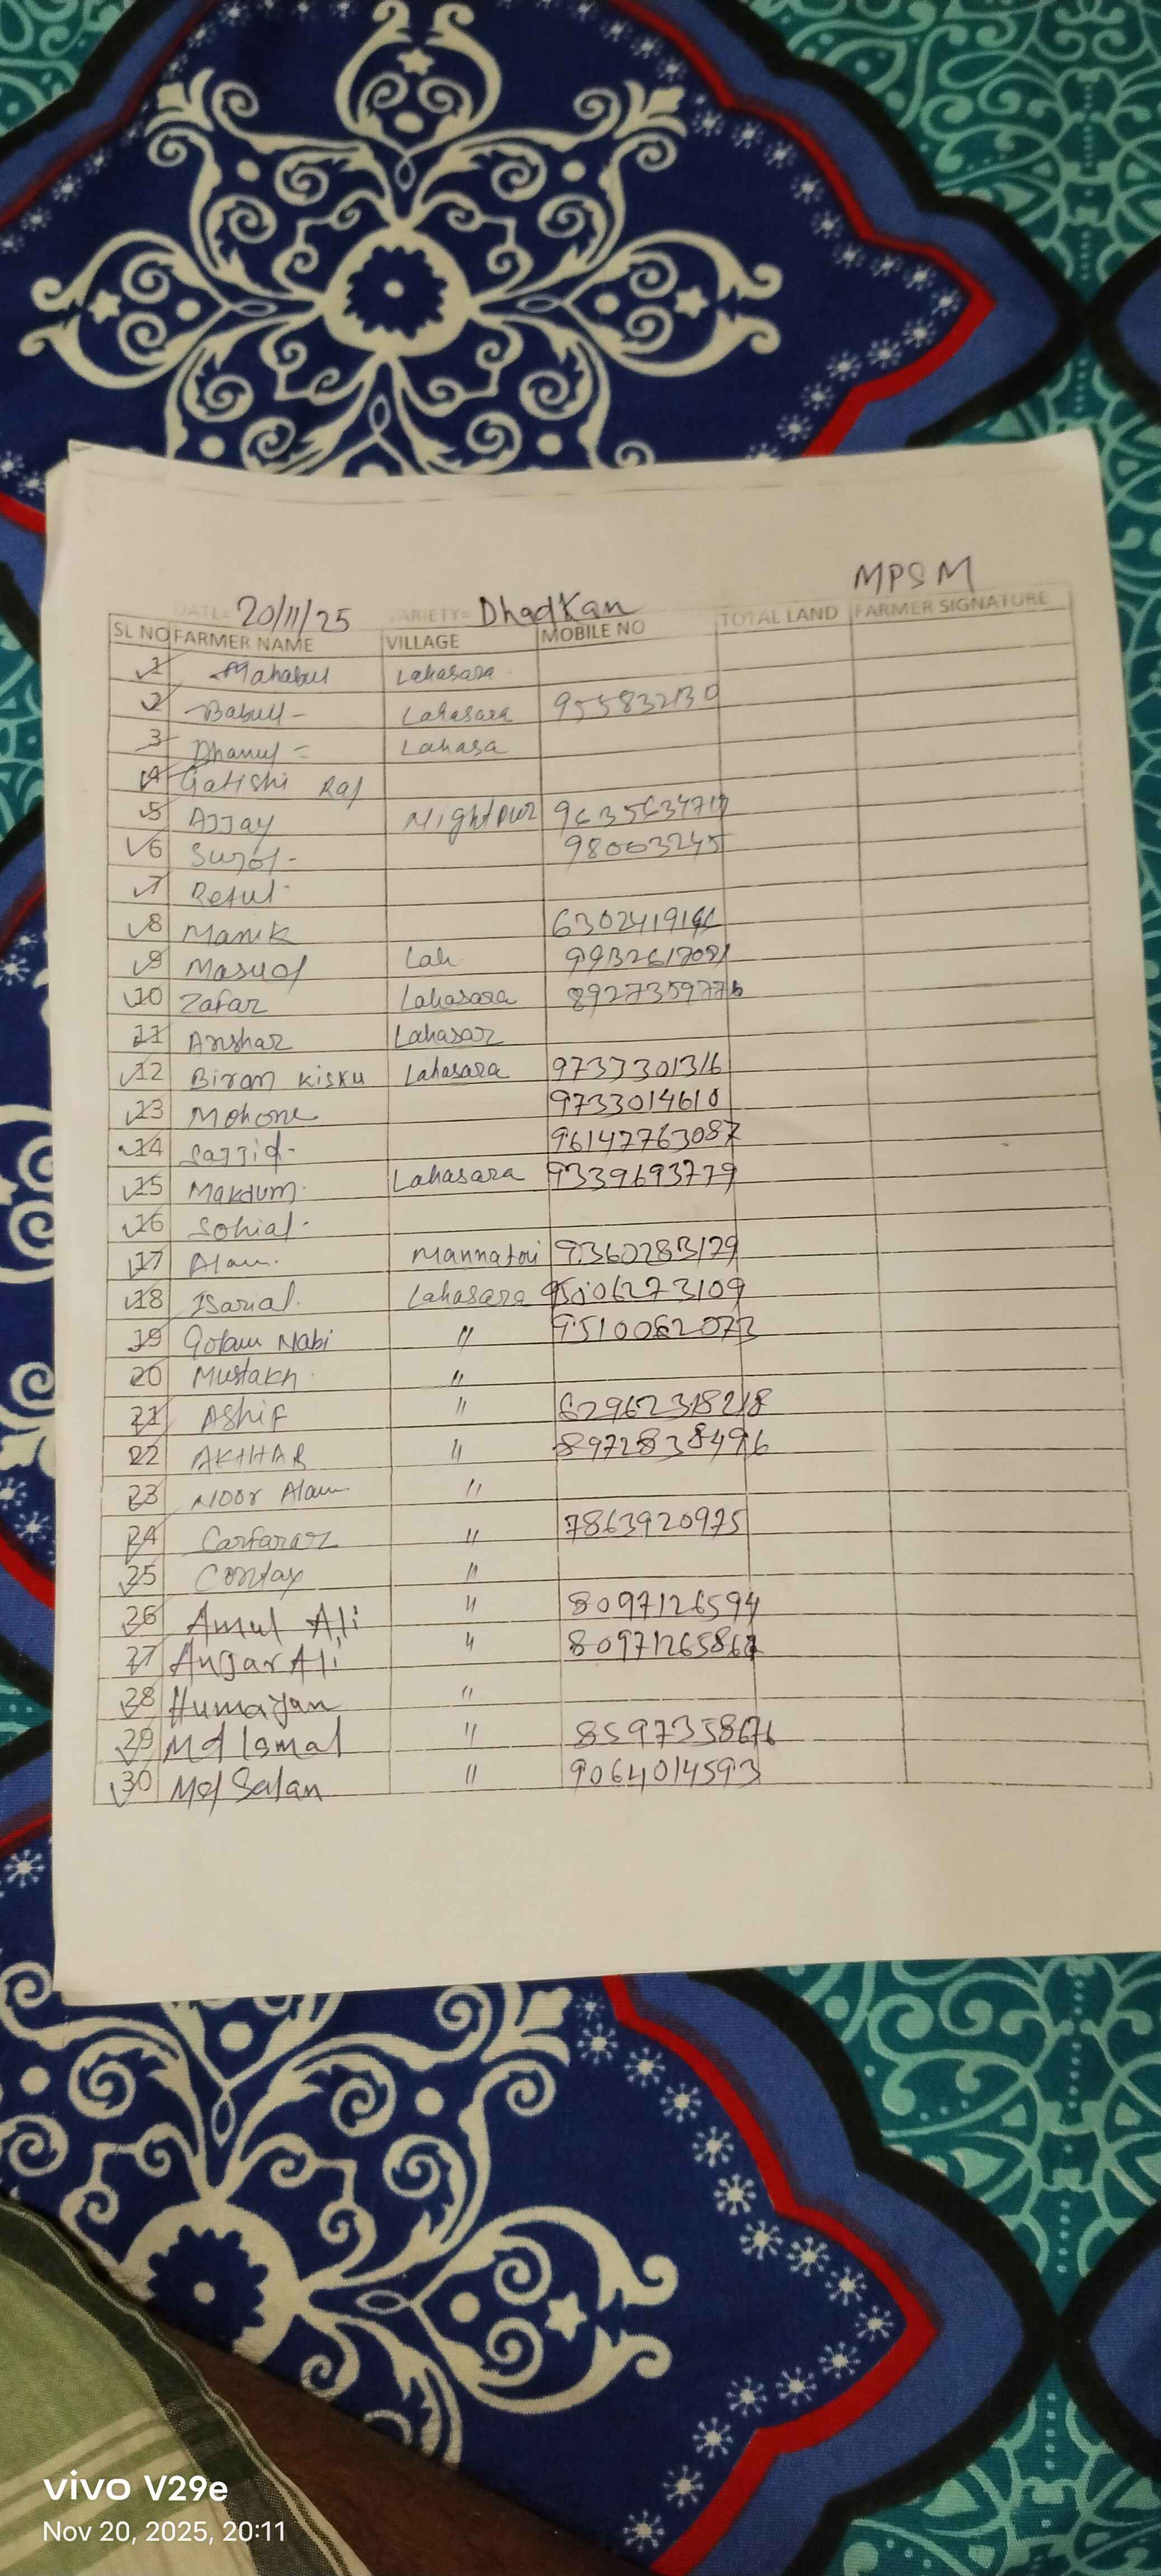 MPSM
DATE= 20/11/25 VARIETY= Dhadkan
SL NO FARMER NAME VILLAGE MOBILE NO TOTAL LAND FARMER SIGNATURE
1 Mahabul Lahasara
2 Babull- Lahasara 955832130
3 Dhanul = Lahasa
4 Gatishi Raj
5 AJJay Nightpur 9635634717
6 Surof- 98003245
7 Reful
8 Manik 6302419196
9 Masud Lah 9932617091
10 Zafar Lahasara 8927359776
11 Anshar Lahasar
12 Biram Kisku Lahasara 9733301316
13 Mohone 9733014610
14 Sajjid- 96147763087
15 Makdum Lahasara 9339693779
16 Sohial-
17 Alam Mannatoi 9360283179
18 Isarial Lahasara 9506273109
19 Golam Nabi " 9510062073
20 Mustakh "
21 Ashif " 62962318218
22 AKHHAR " 8972838496
23 Noor Alam "
24 Carfaraz " 7863920975
25 "
26 Amul Ali " 8097126594
27 Anjar Ali " 80971265867
28 Humayan "
29 Md Ismal " 8597358676
30 Md Salan " 9064014593
vivo V29e
Nov 20, 2025, 20:11